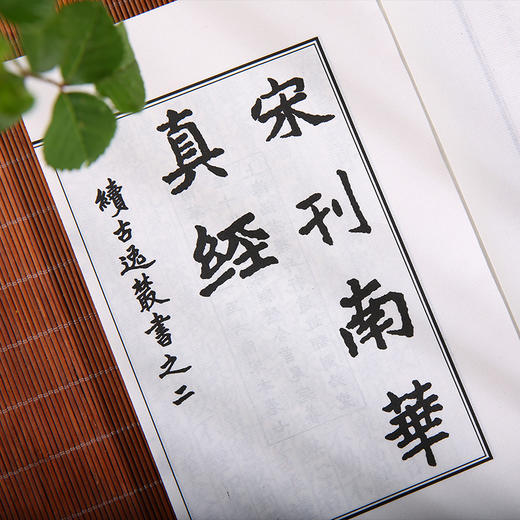 宋刊南華
真經
續古逸叢書之二